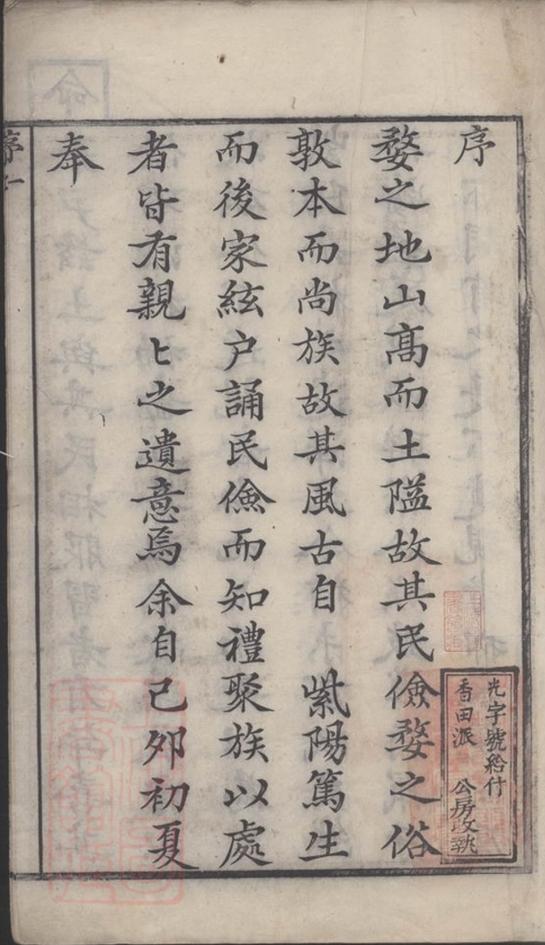 序
婺之地山高而土隘故其民儉婺之俗
敦本而尚族故其風古自 紫陽篤生
而後家絃户誦民儉而知禮聚族以處
者皆有親匕之遺意焉余自己夘初夏
奉
序一
命
光字號給付
香田派 公房收執